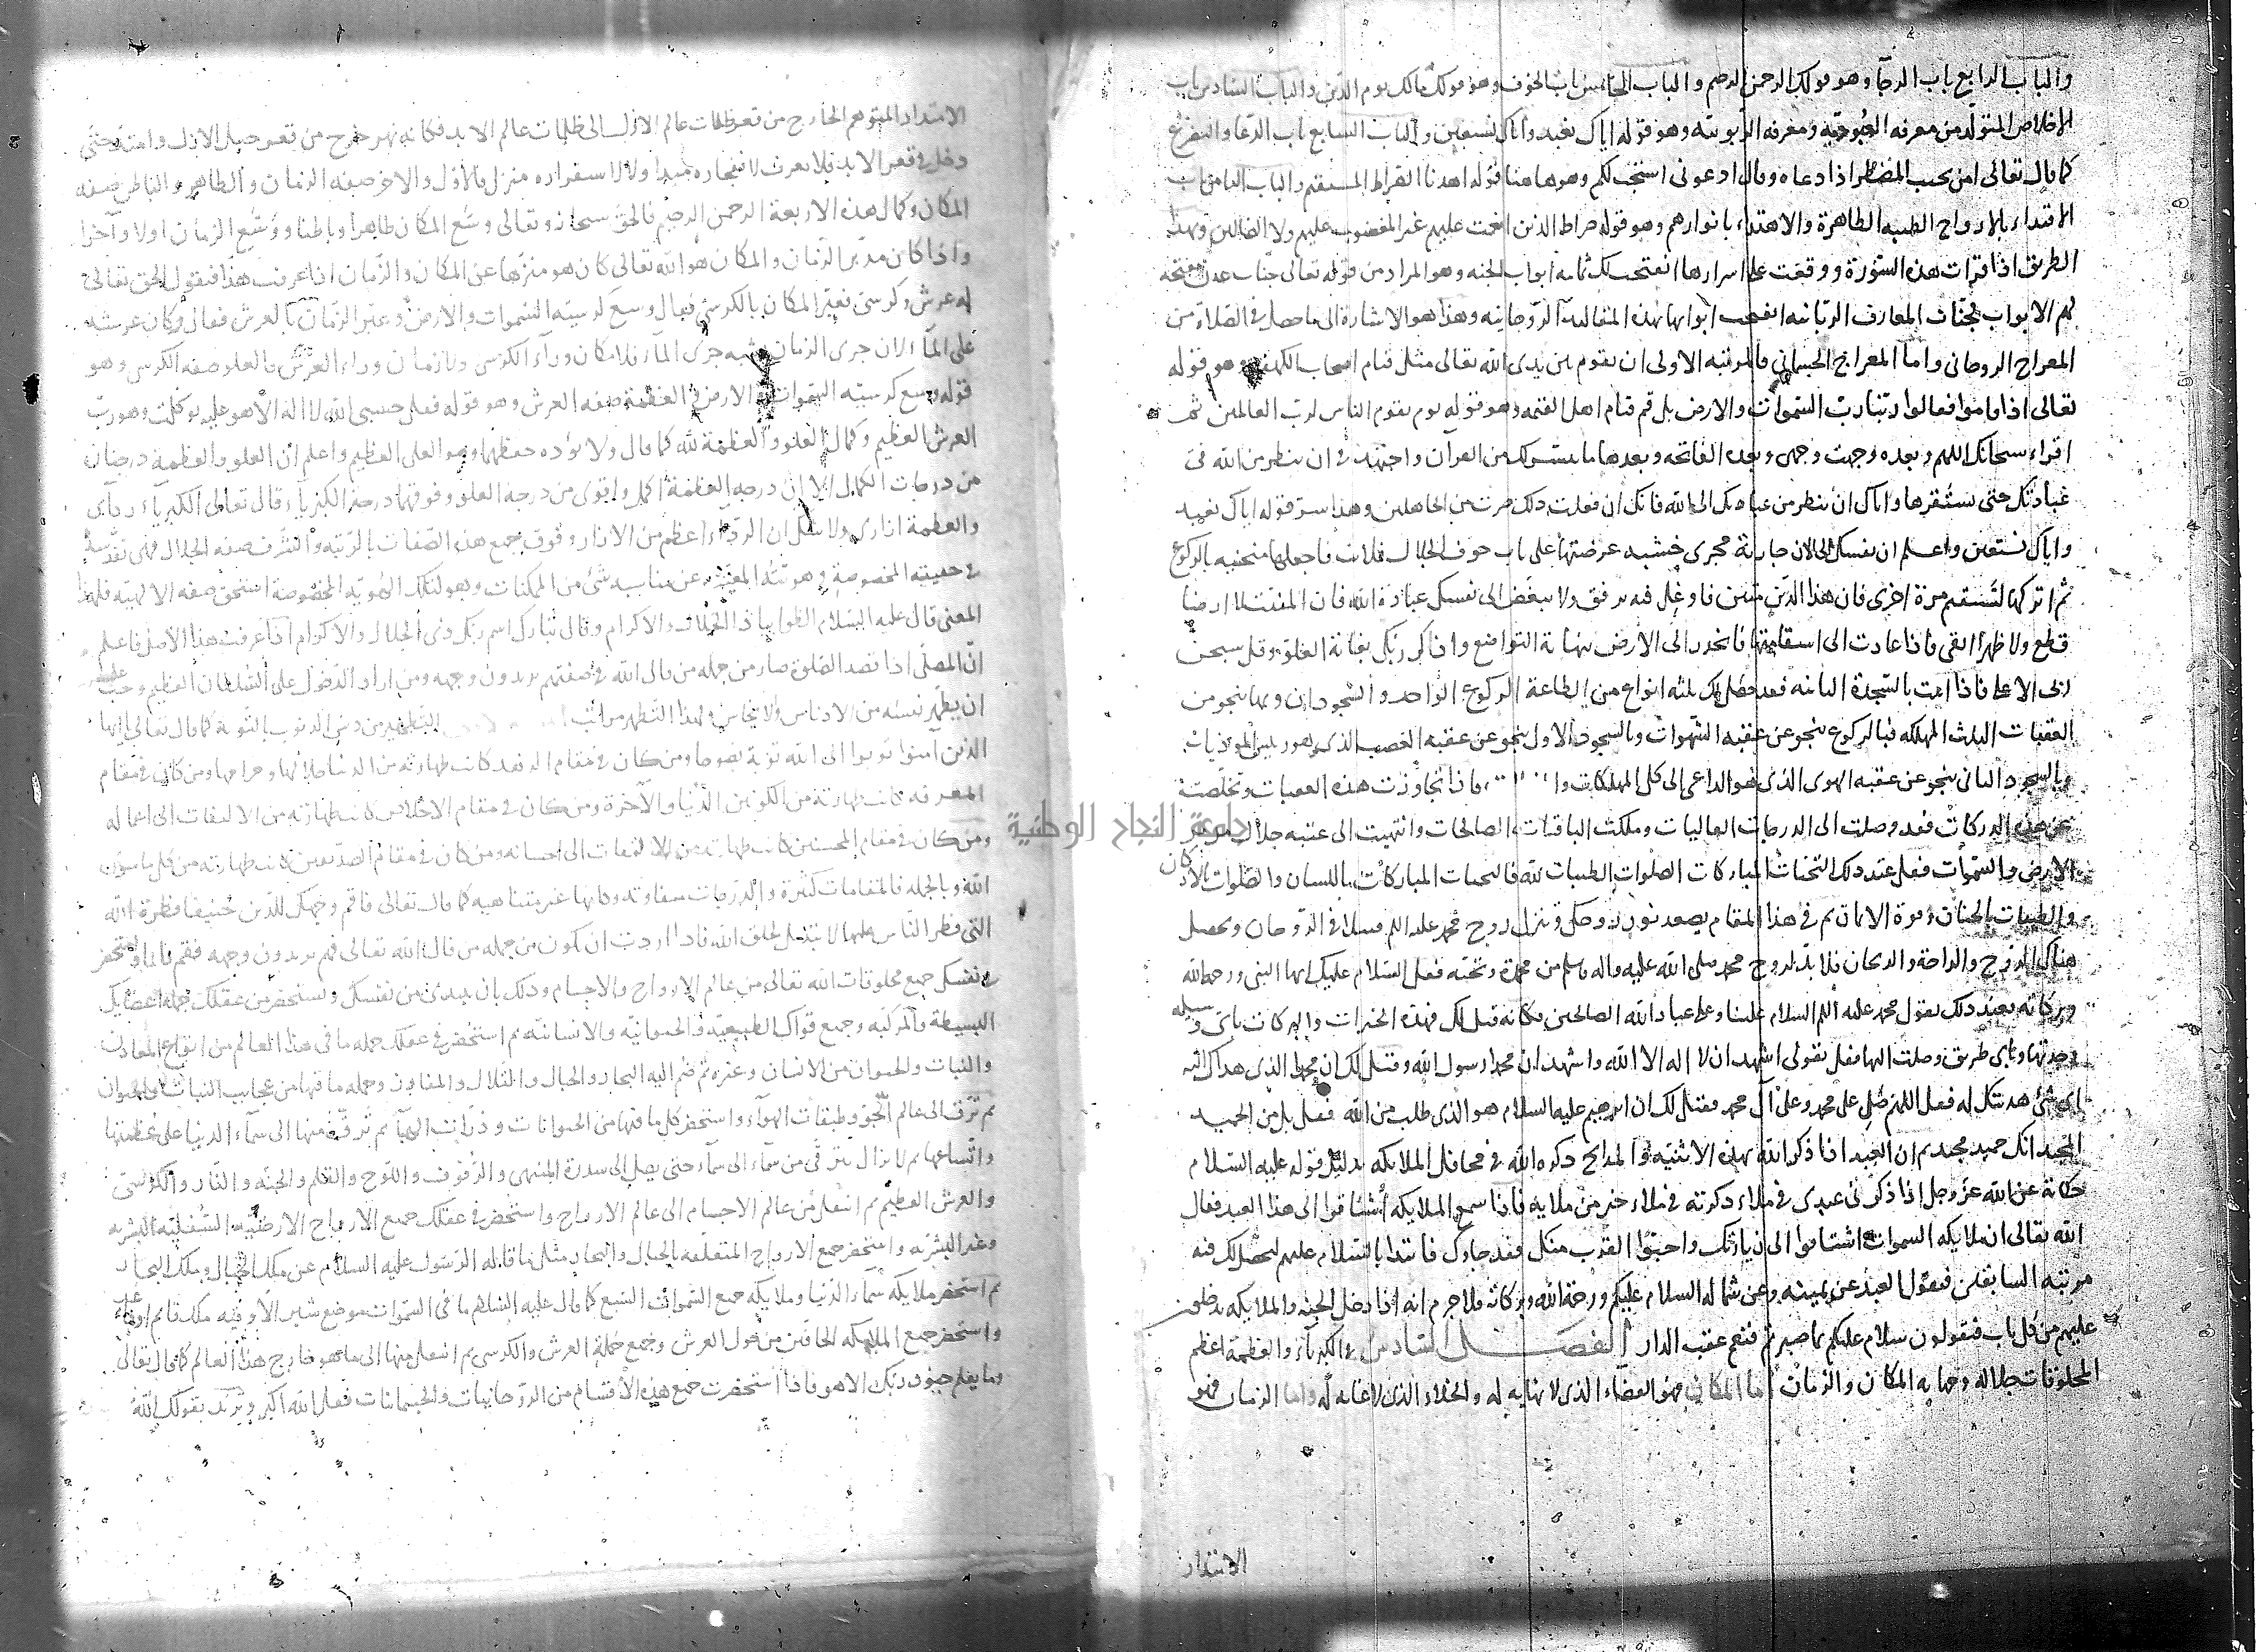 والباب الرابع باب الرجآ وهو قولك الرحمن الرحيم والباب الخامس باب الخوف وهو قولك مالك يوم الدين والباب السادس باب
الاخلاص المتولد من معرفه العبوديه ومعرفه الربوبيته وهو قوله اياك نعبد واياك نستعين والباب السابع باب الدعا والتضرع
كما قال تعالى امن يجيب المضطر اذا دعاه وقال ادعوني استجب لكم وهو هاهنا قوله اهدنا الصراط المستقيم والباب الثامن باب
الاقتداء بالارواح الطيبه الطاهرة والاهتداء بانوارهم وهو قوله صراط الذين انعمت عليهم غير المغضوب عليهم ولا الضالين وبهذا
الطريق اذا قرات هذه السورة ووقفت على اسرارها انفتحت لك ثمانيه ابواب الجنه وهو المراد من قوله تعالى جنات عدن مفتحه
لهم الابواب فجنات المعارف الربانيه انفتحت ابوابها بهذه المقاليد الروحانيه وهذا هو الاشارة الى ما حصل في الصلاة من
المعراج الروحاني واما المعراج الجسماني فالمرتبه الاولى ان تقوم بين يدي الله تعالى مثل قيام اصحاب الكهف وهو قوله
تعالى اذ قاموا فقالوا ربنا رب السموات والارض بل قم قيام اهل القيمه وهو قوله يوم يقوم الناس لرب العالمين ثم
اقراء سبحانك اللهم وبعده وجهت وجهي وبعده الفاتحه وبعدها ما تيسر لك من القرآن واجتهد في ان تنظر من الله في
عبادتك حتى تستحقرها واياك ان تنظر من عبادتك الى الله فانك ان فعلت ذلك صرت من الهالكين وهذا سر قوله اياك نعبد
واياك نستعين واعلم ان نفسك الى الان جارية مجرى خشبه عرضتها على باب خوف الجلال فلانت فاجعلها منحنيه بالركوع
ثم اتركها لتستقيم مرة اخرى فان هذا الدين متين فاوغل فيه برفق ولا تبغض الى نفسك عبادة الله فان المنبت لا ارضا
قطع ولا ظهرا ابقى فاذا عادت الى استقامتها فانحدر الى الارض بنهاية التواضع واذكر ربك بغاية العلو وقل سبحن
ربى الاعلى فاذا اتيت بالسجدة الثانيه فقد حصل لك ثلثه انواع من الطاعة الركوع الواحد والسجودان وبها تنجو من
العقبات الثلاث المهلكه فبالركوع تنجو عن عقبه الشهوات وبالسجود الاول تنجو عن عقبه الغضب الذي هو رييس الموذيات
وبالسجود الثاني تنجو عن عقبه الهوى الذي هو الداعي الى كل المهلكات فاذا تجاوزت هذه العقبات وتخلصت
عن هذه الدركات فقد وصلت الى الدرجات العاليات وملكت الباقيات الصالحات وانتهيت الى عتبه جلال مدبر
الارض والسموات فقل عند ذلك التحيات المباركات الصلوات الطيبات لله فالتحيات المباركات باللسان والصلوات بالاركان
والطيبات بالجنان وقوة الايمان ثم في هذا المقام يصعد نور روحك وينزل روح محمد عليه السلام فيتلاقى الروحان ويحصل
هناك الروح والراحة والريحان فلا بد لروح محمد صلى الله عليه واله وسلم من محمدة وتحيه فقل السلام عليك ايها النبي ورحمه الله
وبركاته فعند ذلك يقول محمد عليه السلام السلام علينا وعلى عباد الله الصالحين فكانه قيل لك فهذه الخيرات والبركات باي وسيله
وجدتها وباي طريق وصلت اليها فقل بقولي اشهد ان لا اله الا الله واشهد ان محمدا رسول الله وقيل لك ان محمدا الذي هداك اليه
اي شيء هديتك له فقل اللهم صلي على محمد وعلى آل محمد فقيل لك ان ابرهيم عليه السلام هو الذي طلب من الله فقل بل من الحميد
المجيد انك حميد مجيد ثم ان العبد اذا ذكر الله بهذه الاثنيه والمدايح ذكره الله في محافل الملايكه بدليل قوله عليه السلام
حكاية عن الله عز وجل اذا ذكرني عبدي في ملاء ذكرته في ملاء خير من ملايه فاذا سمع الملايكه اشتاقوا الى هذا العبد فقال
الله تعالى ان ملايكه السموات اشتاقوا الى زيارتك واحبوا القرب منك فقد جاوك فابتدا بالسلام عليهم لتحصل لك فيه
مرتبه السابقين فيقول العبد عن يمينه وعن شماله السلام عليكم ورحمة الله وبركاته فلا جرم انه اذا دخل الجنه والملايكه يدخلون
عليهم من كل باب فيقولون سلام عليكم بما صبرتم فنعم عقبى الدار الفصل السادس في الكبرياء والعظمة اعظم
المخلوقات جلاله ومهابه المكان والزمان اما المكان فهو الفضاء الذي لا نهايه له والخلاء الذي لا غايه له واما الزمان فهو
الامتداد
الامتداد المتوهم الخارج من قعر ظلمات عالم الازل الى ظلمات عالم الابد فكانه نهر خرج من قعر جبل الازل وامتد حتى
دخل في قعر الابد فلا يعرف لانفجاره مبدا ولا لاستقراره منزل فالاول والاخر صفه الزمان والظاهر والباطن صفه
المكان وكمال هذه الاربعة الرحمن الرحيم فالحق سبحانه وتعالى وسع المكان ظاهرا وباطنا ووسع الزمان اولا وآخرا
واذا كان مدبر الزمان والمكان هو الله تعالى كان هو منزها عن المكان والزمان اذا عرفت هذا فنقول الحق تعالى
له عرش وكرسي فعبر المكان بالكرسي فقال وسع كرسيه السموات والارض وعبر الزمان بالعرش فقال وكان عرشه
على المآ لان جرى الزمان يشبه جرى المآ فلا مكان ورآء الكرسي ولا زمان وراء العرش فالعلو صفه الكرسي وهو
قوله وسع كرسيه السموات والارض والعظمة صفه العرش وهو قوله فقل حسبي الله لا اله الا هو عليه توكلت وهو رب
العرش العظيم وكمال العلو والعظمة لله كما قال ولا يؤده حفظهما وهو العلي العظيم واعلم ان العلو والعظمة درجتان
من درجات الكمال الا ان درجه العظمة اكمل واقوى من درجه العلو وفوقهما درجة الكبرياء قال تعالى الكبرياء ردآي
والعظمة ازاري ولا شك ان الردآء اعظم من الازار وفوق جميع هذه الصفات بالرتبه والشرف صفه الجلال فهي تقدسه
في حقيقته المخصوصة وهويته المعينه عن مناسبه شئ من الممكنات وهو لتلك الهويه المخصوصة استحق صفه الالهيه فلهذا
المعنى قال عليه السلام الظوا بياذا الجلال والاكرام وقال تبارك اسم ربك ذي الجلال والاكرام اذا عرفت هذا الاصل فاعلم
ان المصلي اذا قصد الصلوة صار من جمله من قال الله في صفتهم يريدون وجهه ومن اراد الدخول على السلطان العظيم وجب عليه
ان يطهر نفسه من الادناس والانجاس ولهذا التطهر مراتب التطهير من دنس الذنوب بالتوبة كما قال تعالى يا ايها
الذين آمنوا توبوا الى الله توبة نصوحا ومن كان في مقام الزهد كانت طهارته من الدنيا حلالها وحرامها ومن كان في مقام
المعرفه كانت طهارته من الكونين الدنيا والآخرة ومن كان في مقام الاخلاص كانت طهارته من الالتفات الى اعماله
ومن كان في مقام المحسنين كانت طهارته من الالتفات الى احسانه ومن كان في مقام الصديقين كانت طهارته من كل ما سوى
الله وبالجمله فالمقامات كثيرة والدرجات متفاوته وكانها غير متناهيه كما قال تعالى فاقم وجهك للدين حنيفا فطرة الله
التي فطر الناس عليها لا تبديل لخلق الله فاذا اردت ان تكون من جمله من قال الله تعالى فيهم يريدون وجهه فقم قايما واستحضر
في نفسك جميع مخلوقات الله تعالى من عالم الارواح والاجسام وذلك بان تبتدئ من نفسك وتستحضر من عقلك جمله اعضايك
البسيطة والمركبه وجميع قواك الطبيعيه والحيوانيه والانسانيه ثم استحضر في عقلك جمله ما في هذا العالم من انواع المعادن
والنبات والحيوان من الانسان وغيره ثم ضم اليه البحار والجبال والتلال والمفاوز وجمله ما فيها من عجايب النبات والحيوان
ثم ترق الى عالم الجو وطبقات الهوآء واستحضر كل ما فيها من الحيوانات وذرات الهبآ ثم ترق منها الى سمآء الدنيا على عظمتها
واتساعها ثم لا تزال تترقى من سمآء الى سمآء حتى تصل الى سدرة المنتهى والرفرف واللوح والقلم والجنه والنار والكرسي
والعرش العظيم ثم انتقل من عالم الاجسام الى عالم الارواح واستحضر في عقلك جميع الارواح الارضيه السفليه البشريه
وغير البشريه واستحضر جميع الارواح المتعلقه بالجبال والبحار مثل ما قاله الرسول عليه السلام عن ملك الجبال وملك البحار
ثم استحضر ملايكه سمآء الدنيا وملايكه جميع السموات السبع كما قال عليه السلام ما في السموات موضع شبر الا وفيه ملك قايم او قاعد
واستحضر جميع الملايكه الحافين من حول العرش وجميع حملة العرش والكرسي ثم انتقل منها الى ما هو خارج هذا العالم كما قال تعالى
وما يعلم جنود ربك الا هو فاذا استحضرت جميع هذه الاقسام من الروحانيات والجسمانيات فقل الله اكبر وتريد بقولك الله
جامعة النجاح الوطنية